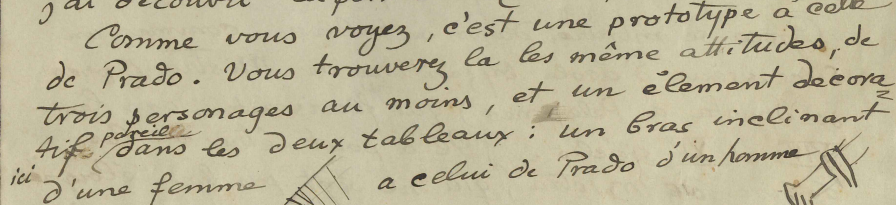 j'ai découvert
Comme vous voyez, c'est une prototype a celle
de Prado. Vous trouverez la les même attitudes, de
trois personages au moins, et un élement décora=
tif pareil dans les deux tableaux: un bras inclinant
ici d'une femme a celui de Prado d'un homme